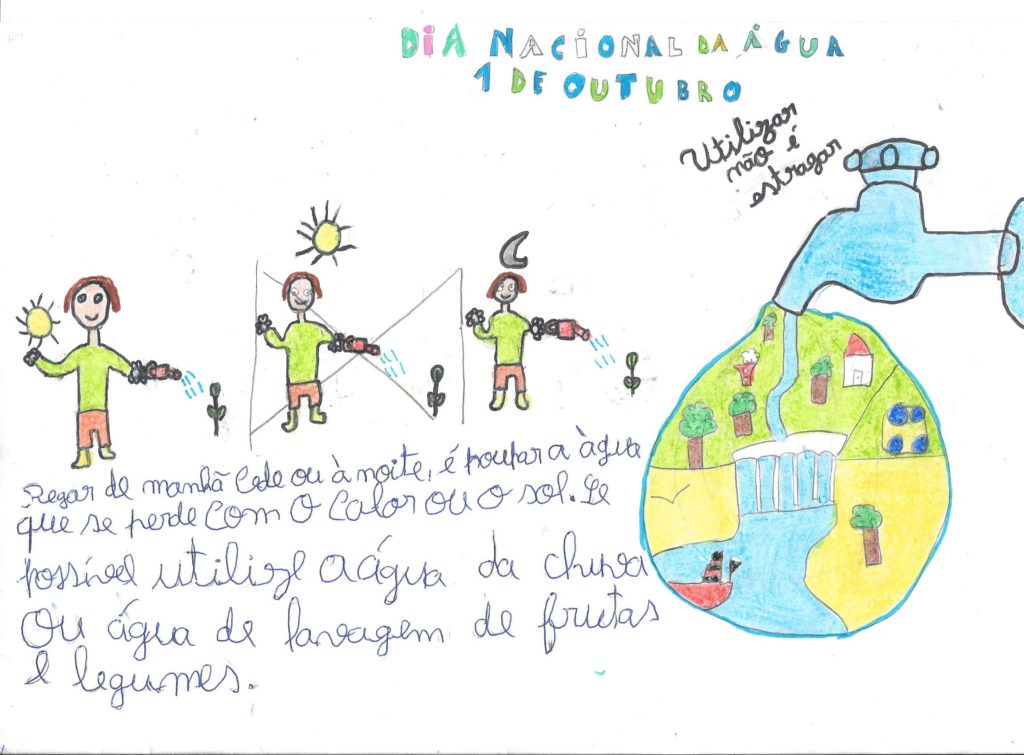 DiA NACIONAL DA ÁGUA
1 DE OUTUBRO
Utilizar
não é
estragar
Regar de manhã cedo ou à noite, é poupar a àgua
que se perde com o calor ou o sol. Se
possível utilize a água da chuva
Ou água de lavagem de frutas
e legumes.